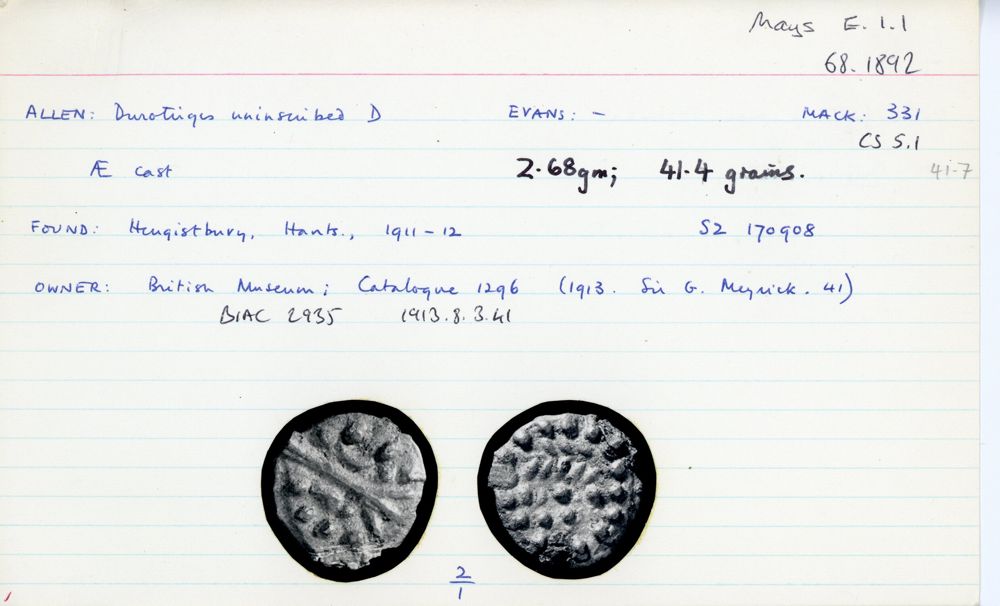 Mays E.1.1
68.1892
ALLEN: Durotriges uninscribed D EVANS: - MACK: 331
CS S.1
Æ cast 2.68gm; 41.4 grains. 41.7
FOUND: Hengistbury, Hants., 1911-12 SZ 170908
OWNER: British Museum; Catalogue 1296 (1913. Sir G. Meyrick. 41)
BMC 2935 1913.8.3.41
2
1